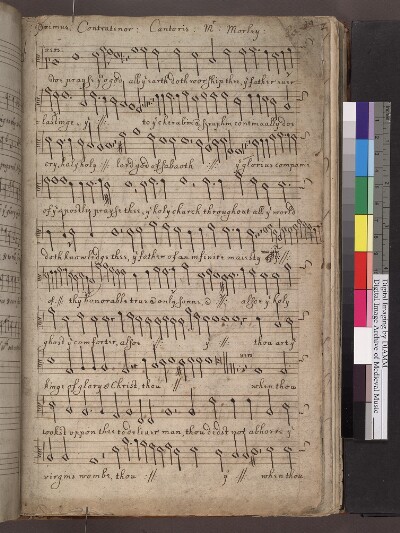 Primus: Contratenor: Cantoris: Mr: Morley:
dos prayse ye o god, all ye earth doth worship thee, ye father ever
lastinge, ye //: to ye cherubin & seraphin continually dos
cry, holy holy //: lord god of sabaoth //: ye glorius compani
of ye apostls prayse thee, ye holy church throughout all ye world
doth knowledge thee, ye father of an infinite maiesty //:
of //: thy honorable true & only sonne & //: alsoe ye holy
ghost ye comforter, alsoe // ye // thou art ye
kinge of glory o Christ, thou // when thou
tookest uppon thee to deliver man, thou didst not abhorre ye
virgins wombe, thou // ye // when thou
Digital Imaging by DIAMM
Digital Image Archive of Medieval Music